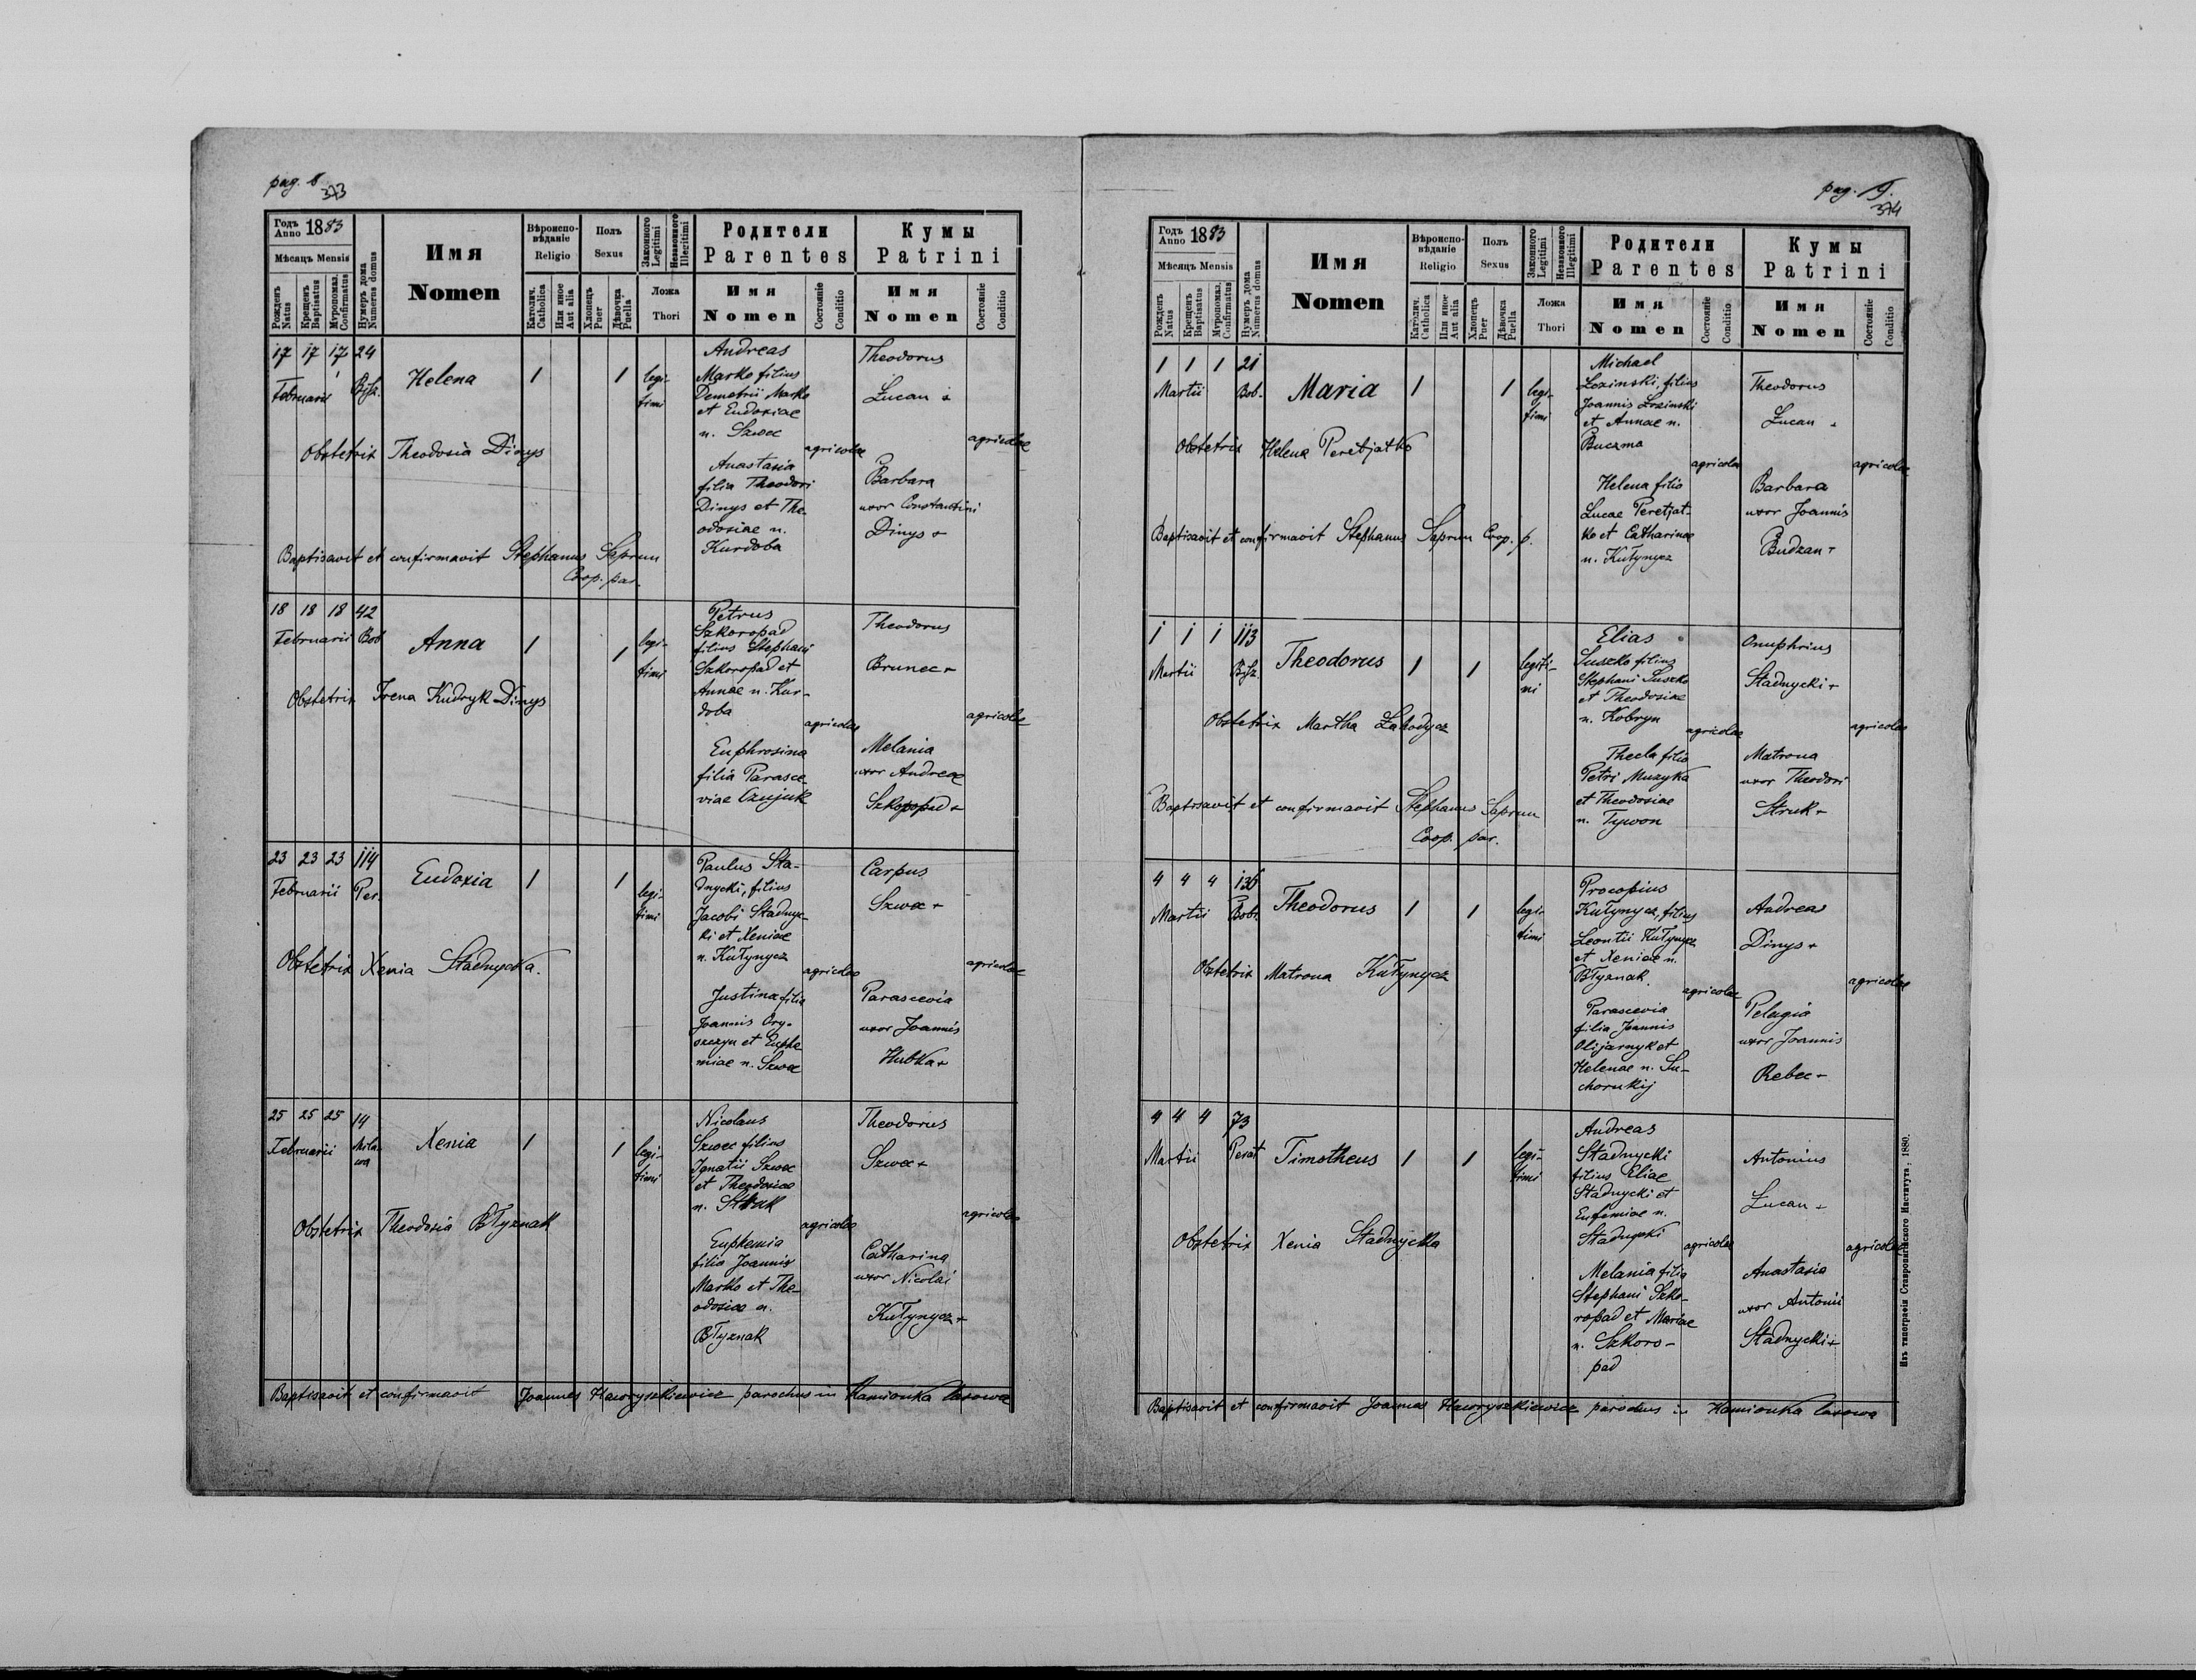 pag. 8
373
Годъ
Anno 1883
Мѣсяцъ Mensis
Рожденъ Natus
Крещенъ Baptisatus
Мѵропомаз. Confirmatus
Нумеръ дома Numerus domus
Имя
Nomen
Вѣроиспо-
вѣданіе
Religio
Католич. Catholica
Или иное Aut alia
Полъ
Sexus
Хлопецъ Puer
Дѣвочка Puella
Законного Legitimi
Незаконного Illegitimi
Ложа
Thori
Родители
Parentes
Имя
Nomen
Состояніе Conditio
Кумы
Patrini
Имя
Nomen
Состояніе Conditio
17 17 17 24
Februarii
Helena 1 1 legi-
timi
Andreas
Marko filius
Demetrii Marko
et Eudoxiae
n. Szwec
agricolae
Anastasia
filia Theodori
Dinys et The-
odosiae n.
Kurdoba
Theodorus
Lucan +
agricolae
Barbara
uxor Constantini
Dinys +
Obstetrix Theodosia Dinys
Baptisavit et confirmavit Stephanus Saprun
Coop. par.
18 18 18 42
Februarii Bob
Anna 1 1 legi-
timi
Petrus
Szkoropad
filius Stephani
Szkoropad et
Annae n. Kur-
doba
agricolae
Euphrosina
filia Parasce-
viae Czujuk
Theodorus
Brunec +
agricolae
Melania
uxor Andreae
Szkoropad +
Obstetrix Irena Kudryk Dinys
23 23 23 114
Februarii Per.
Eudoxia 1 1 legi-
timi
Paulus Sta-
dnycki, filius
Jacobi Stadnyc-
ki et Xeniae
n. Kułynycz
agricolae
Justina filia
Joannis Ory-
szczyn et Euphe
miae n. Szwec
Carpus
Szwec +
agricolae
Parascevia
uxor Joannis
Hubka +
Obstetrix Xenia Stadnycka.
25 25 25 14
Februarii Mila-
wa
Xenia 1 1 legi-
timi
Nicolaus
Szwec filius
Ignatii Szwec
et Theodosiae
n. Struk
agricolae
Euphemia
filia Joannis
Marko et The-
odosiae n.
Błyznak
Theodorus
Szwec +
agricolae
Catharina
uxor Nicolai
Kułynycz +
Obstetrix Theodosia Błyznak
Baptisavit et confirmavit Joannes Hawryszkiewicz parochus in Kamionka lasowa
pag. 9.
374
Годъ
Anno 1883
Мѣсяцъ Mensis
Рожденъ Natus
Крещенъ Baptisatus
Мѵропомаз. Confirmatus
Нумеръ дома Numerus domus
Имя
Nomen
Вѣроиспо-
вѣданіе
Religio
Католич. Catholica
Или иное Aut alia
Полъ
Sexus
Хлопецъ Puer
Дѣвочка Puella
Законного Legitimi
Незаконного Illegitimi
Ложа
Thori
Родители
Parentes
Имя
Nomen
Состояніе Conditio
Кумы
Patrini
Имя
Nomen
Состояніе Conditio
1 1 1 21
Martii Bob.
Maria 1 1 legi-
timi
Michael
Lozinski, filius
Joannis Lozinski
et Annae n.
Buczma
agricolae
Helena filia
Lucae Peretjat-
ko et Catharinae
n. Kułynycz
Theodorus
Lucan +
agricolae
Barbara
uxor Joannis
Budzan +
Obstetrix Helena Peretjatko
Baptisavit et confirmavit Stephanus Saprun Coop. p.
1 1 1 113
Martii
Theodorus 1 1 legiti-
mi
Elias
Suszko filius
Stephani Suszko
et Theodosiae
n. Kobryn
agricolae
Thecla filia
Petri Muzyka
et Theodosiae
n. Tywon
Onuphrius
Stadnycki +
agricolae
Matrona
uxor Theodori
Struk +
Obstetrix Martha Zahodycz
Baptisavit et confirmavit Stephanus Saprun
Coop. par.
4 4 4 136
Martii Bob.
Theodorus 1 1 legi-
timi
Procopius
Kułynycz, filius
Leontii Kułynycz
et Xeniae n.
Błyznak.
agricolae
Parascevia
filia Joannis
Olijarnyk et
Helenae n. Su-
chorukij
Andreas
Dinys +
agricolae
Pelagia
uxor Joannis
Rebec +
Obstetrix Matrona Kułynycz
4 4 4 73
Martii Perat
Timotheus 1 1 legi-
timi
Andreas
Stadnycki
filius Eliae
Stadnycki et
Eufemiae n.
Stadnycki
agricolae
Melania filia
Stephani Szko-
ropad et Mariae
n. Szkoro-
pad
Antonius
Lucan +
agricolae
Anastasia
uxor Antonii
Stadnycki +
Obstetrix Xenia Stadnycka
Baptisavit et confirmavit Joannes Hawryszkiewicz parochus in Kamionka lasowa
Изъ типографіи Ставропигійского Института, 1880.